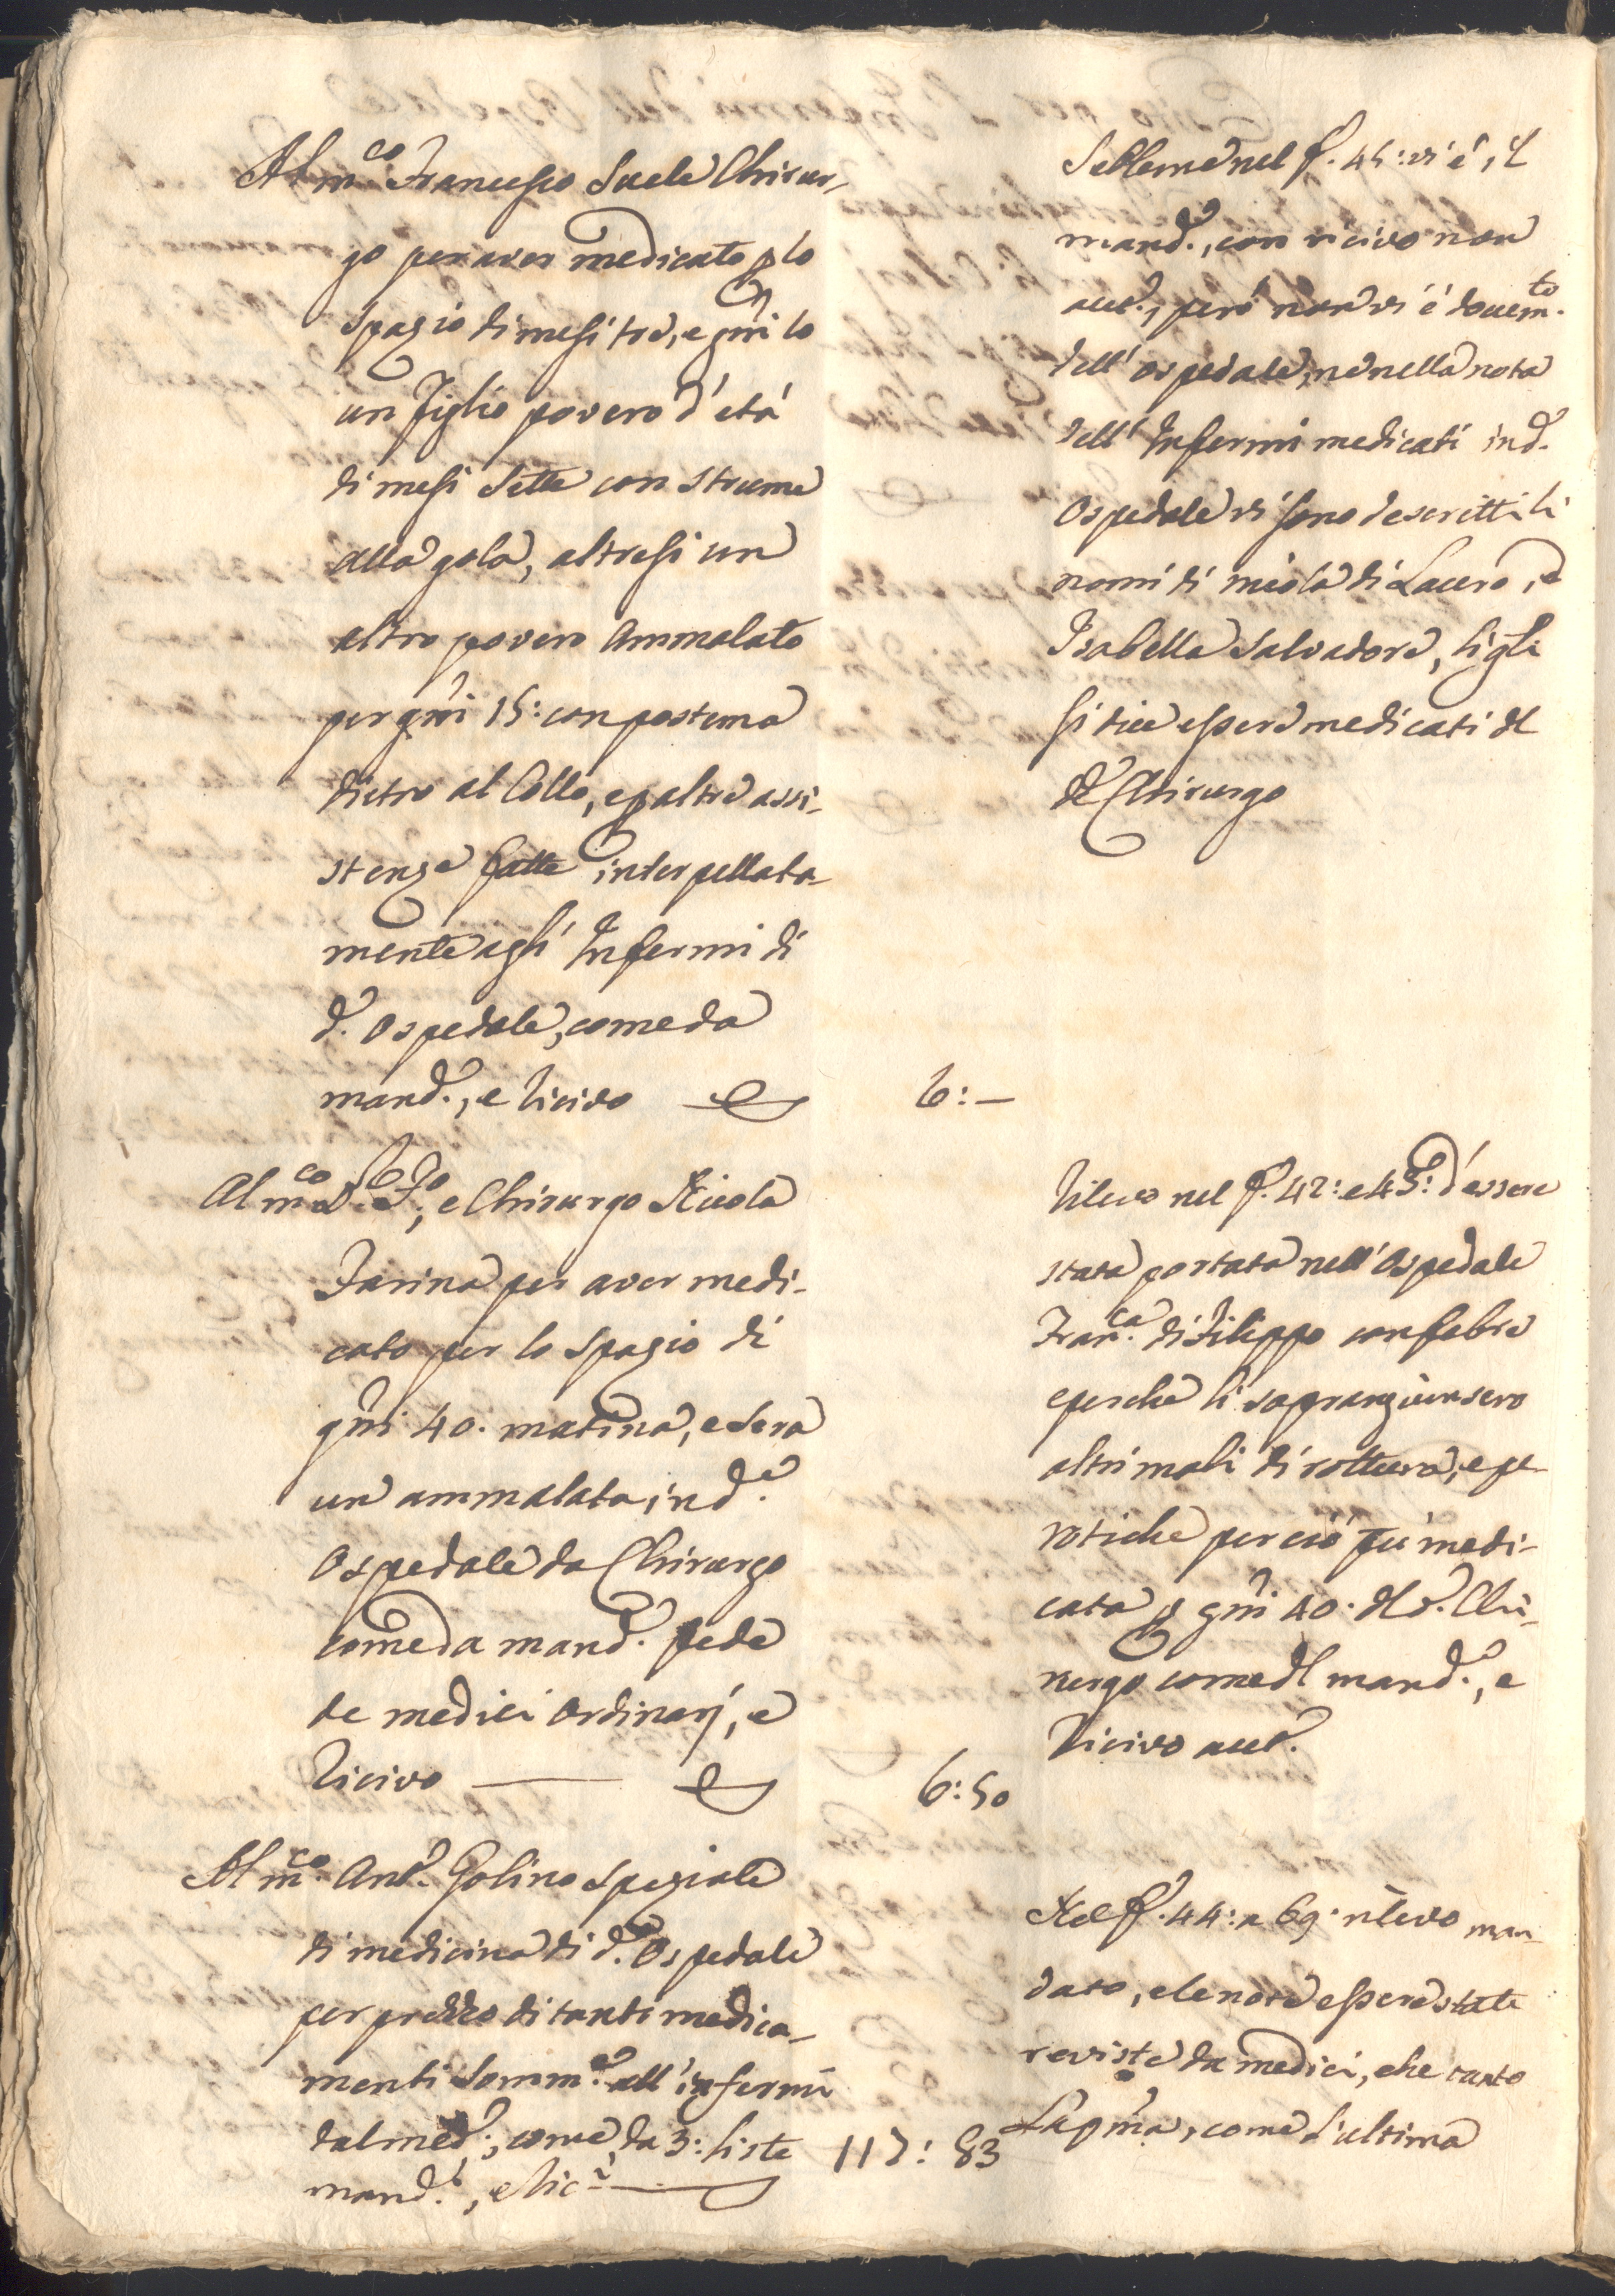 Al m.co Francesco Scele Chirur-
go per aver medicato p lo
spazio di mesi tre, e gñi lo
un figlio povero d'età
di mesi sette con strume
alla gola, altresi un
altro povero Ammalato
per gñi 15: con postema
dietro al Collo, e p altre assi-
stenze fatte interpellata-
mente agli Infermi di
d.o Ospedale, come da
mand.o, e ricivo
6:—
Al m.co D.r F.o, e Chirurgo Nicola
Farina per aver medi-
cato per lo spazio di
gñi 40. matina, e sera
un'ammalata in d.o
Ospedale da Chirurgo
come da mand.o fede
de medici ordinarj, e
ricivo
6:50
Al m.co Ant.o Golino speziale
di medicina di d.o Ospedale
per prezzo di tanti medica-
menti somm.i all'infermi
dal med.o, come da 3: liste
mand.i, e ric.i
117: 83
Sebbene nel f. 41: vi è, il
mand.o, con ricivo non
aut.o, però non vi è docum.to
dell'ospedale, ne nella nota
dell'Infermi medicati in d.o
Ospedale vi sono descritti li
nomi di nicola di Lauro, e
Isabella Salvadore, li qli
si dice essere medicati dal
d.o Chirurgo
Rilevo nel f. 42: e 43: d'essere
stata portata nell'Ospedale
Fran.ca di Filippo con febre
e perche li sopragiunsero
altri mali di rottura, e pe-
rotiche perciò fu medi-
cata p gñi 40. dal d.o Chi-
rurgo come dal mand.o, e
ricivo aut.o
Nel f. 44: a 69. rilevo man-
dato, e le note essere state
reviste da medici, che tanto
La p̃ma, come l'ultima